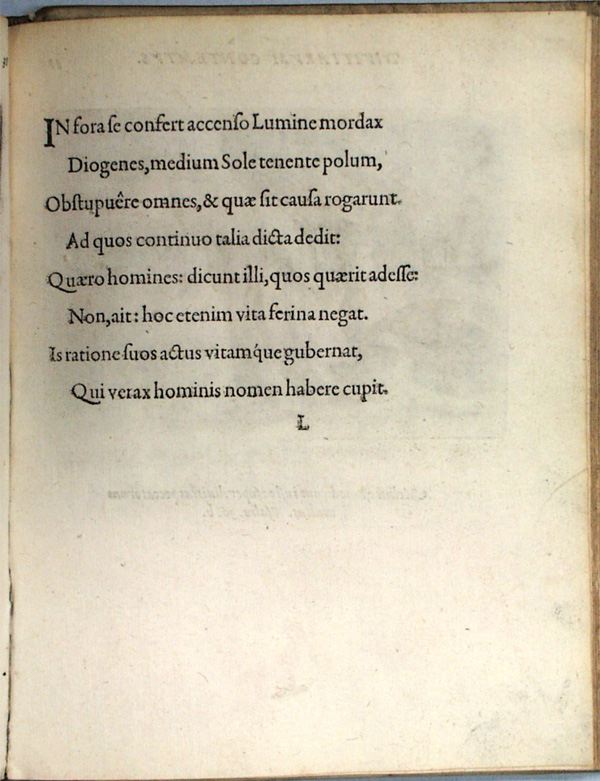 IN fora ſe confert accenſo Lumine mordax
Diogenes, medium Sole tenente polum,
Obſtupuêre omnes, & quæ ſit cauſa rogarunt.
Ad quos continuo talia dicta dedit:
Quæro homines: dicunt illi, quos quærit adeſſe:
Non, ait: hoc etenim vita ferina negat.
Is ratione ſuos actus vitamq́ue gubernat,
Qui verax hominis nomen habere cupit.
L